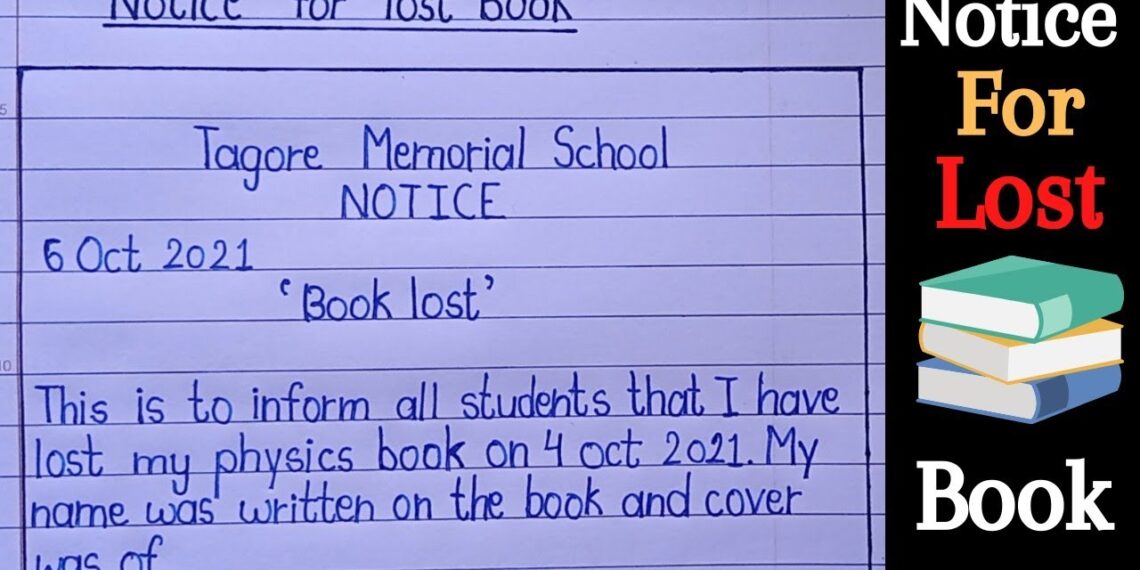 Notice for lost Book
Tagore Memorial School
NOTICE
6 Oct 2021
'Book lost'
This is to inform all students that I have
lost my physics book on 4 oct 2021. My
name was written on the book and cover
was of
Notice
For
Lost
Book
5
10